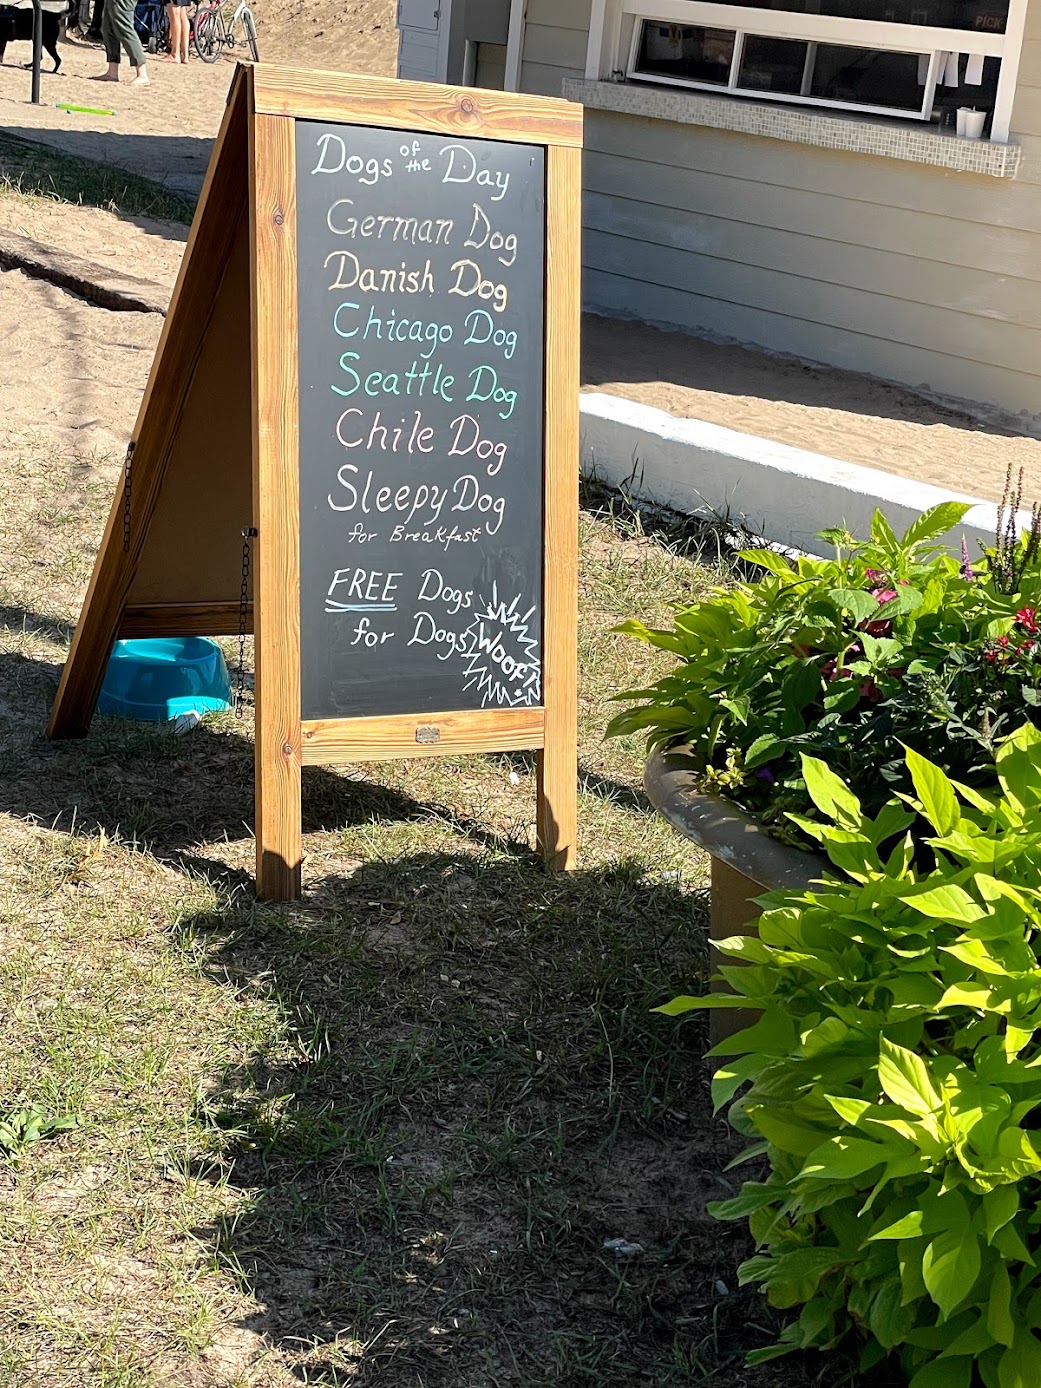 Dogs of the Day
German Dog
Danish Dog
Chicago Dog
Seattle Dog
Chile Dog
Sleepy Dog
for Breakfast
FREE Dogs
for Dogs
WOOF!
PICK